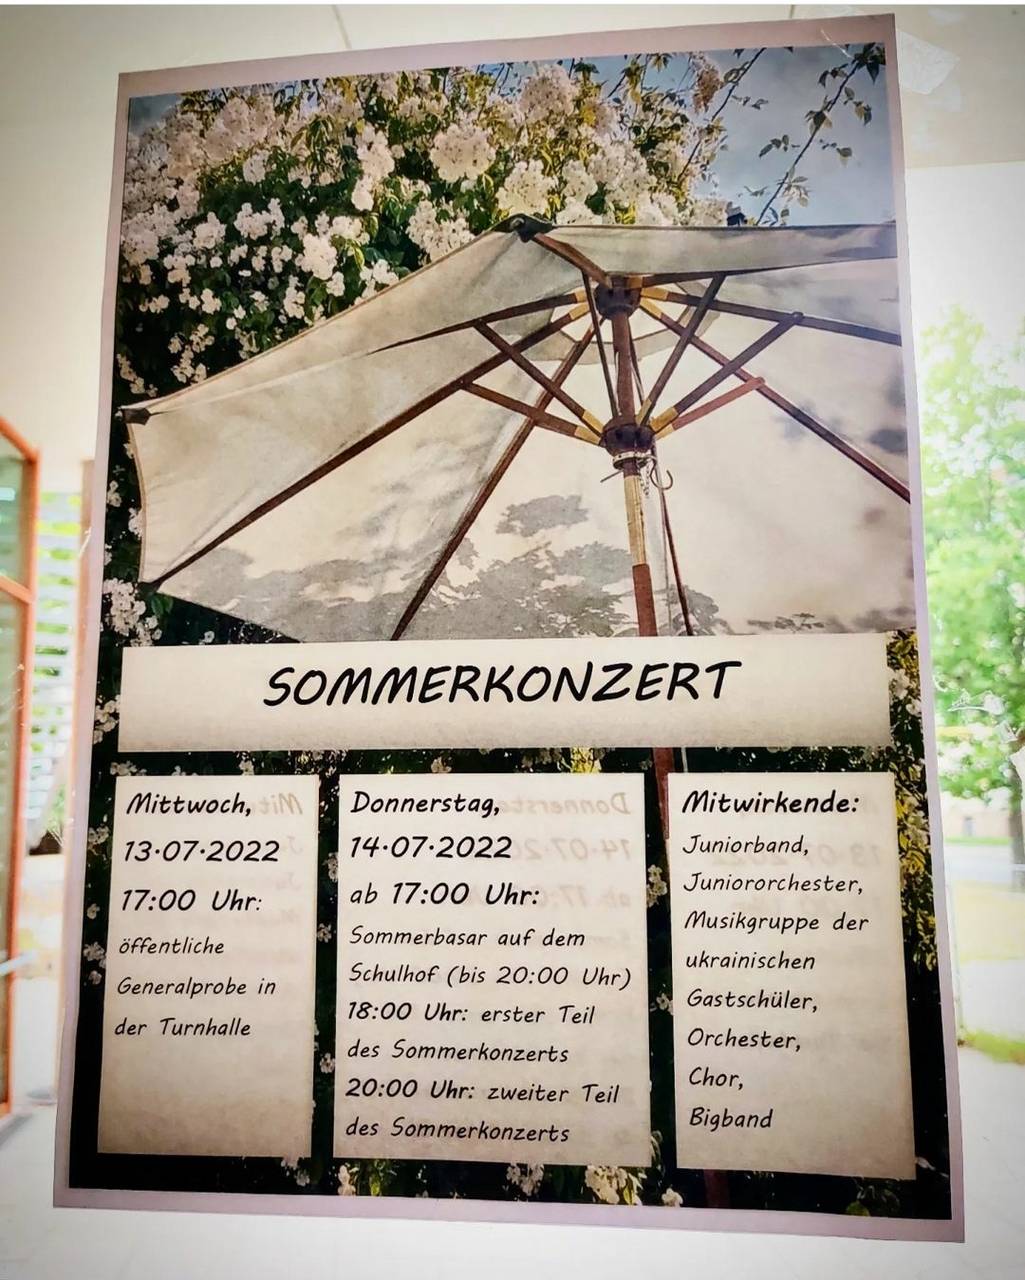 SOMMERKONZERT
Mittwoch,
13.07.2022
17:00 Uhr:
öffentliche
Generalprobe in
der Turnhalle
Donnerstag,
14.07.2022
ab 17:00 Uhr:
Sommerbasar auf dem
Schulhof (bis 20:00 Uhr)
18:00 Uhr: erster Teil
des Sommerkonzerts
20:00 Uhr: zweiter Teil
des Sommerkonzerts
Mitwirkende:
Juniorband,
Juniororchester,
Musikgruppe der
ukrainischen
Gastschüler,
Orchester,
Chor,
Bigband